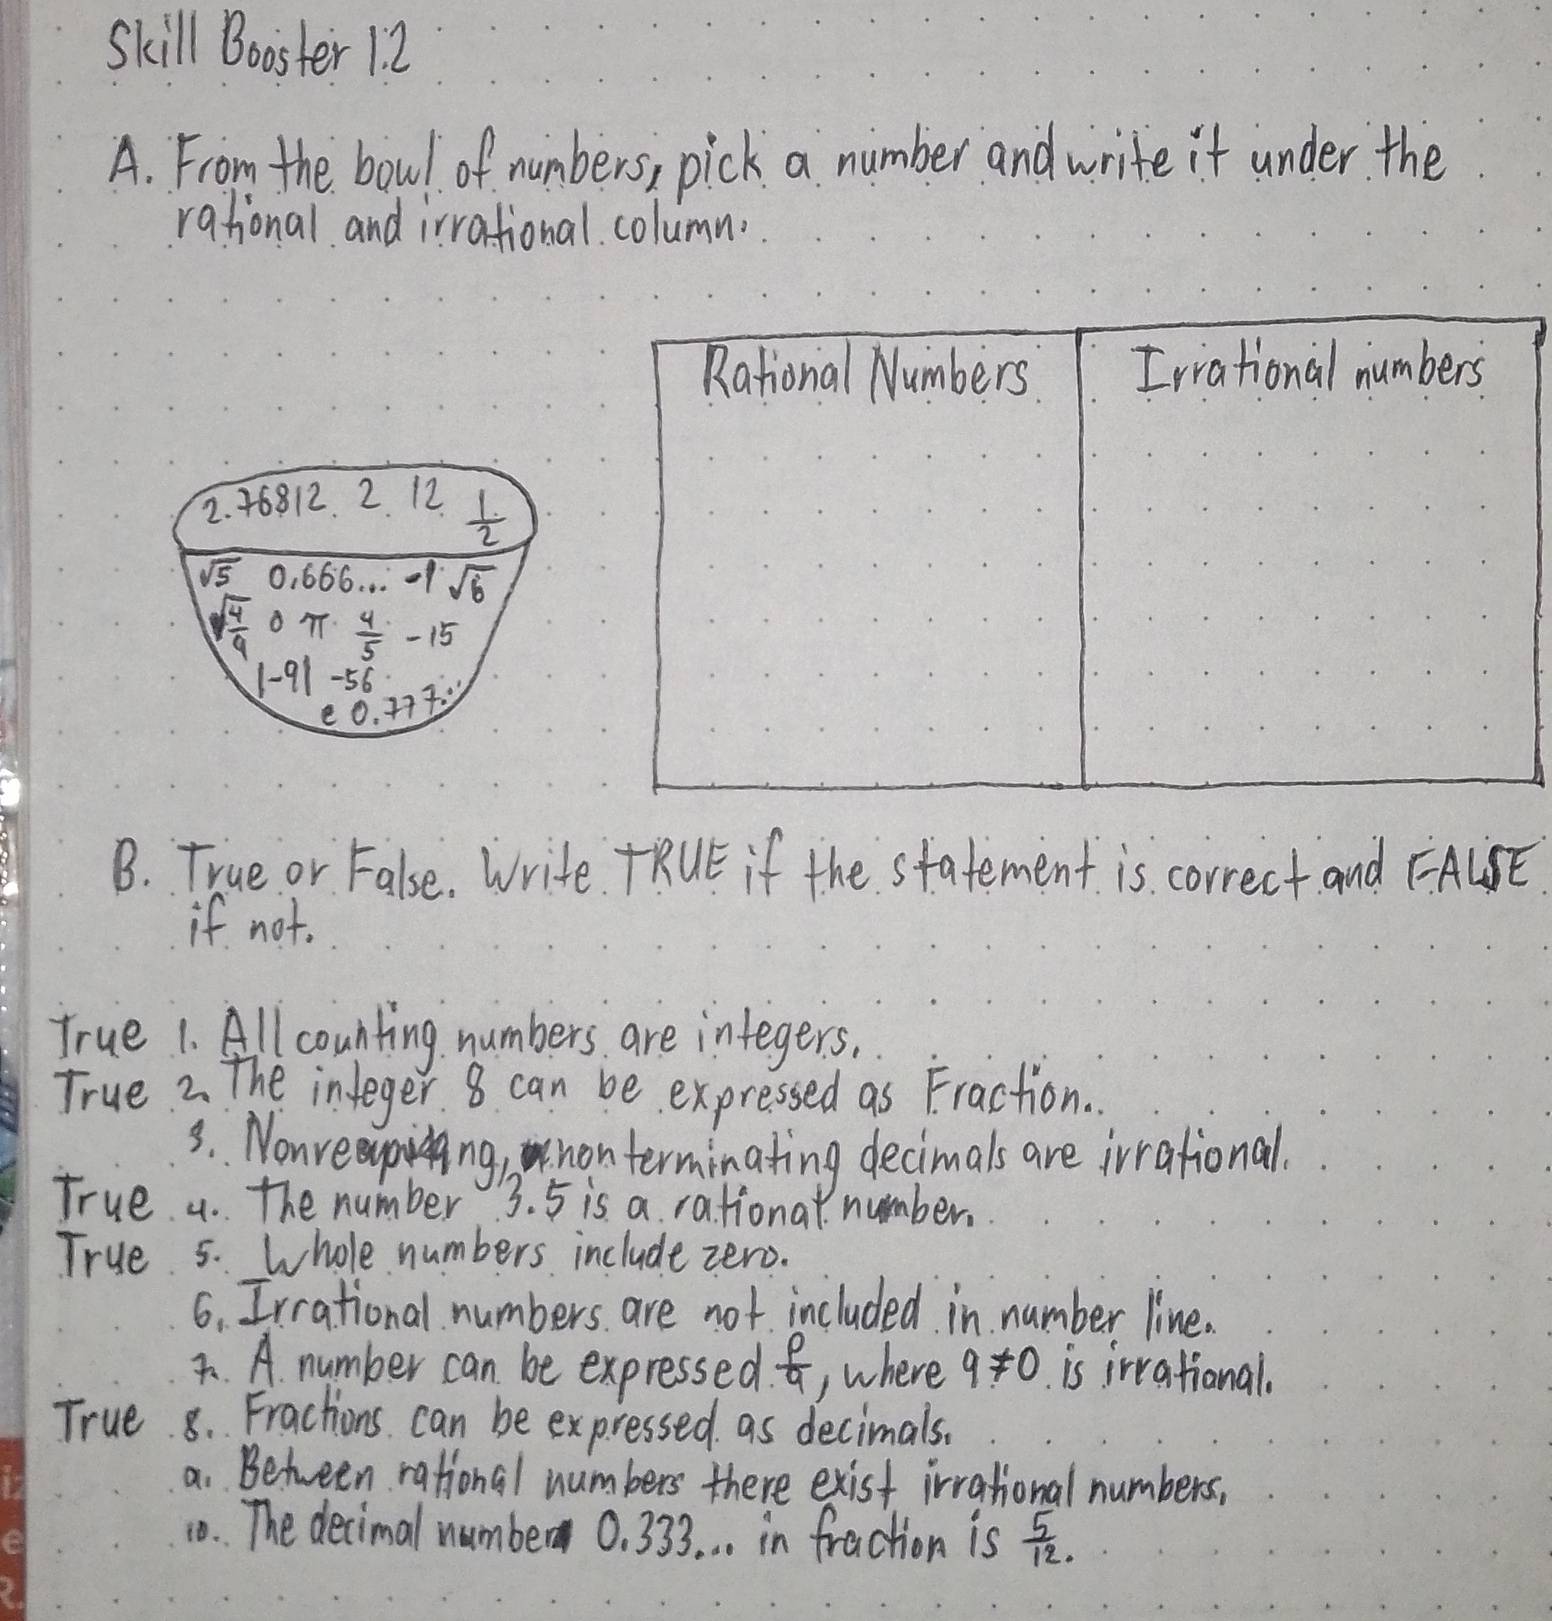 Skill Booster 1.2
A. From the bowl of numbers, pick a number and write it under the
rational and irrational column.
Rational Numbers Irrational numbers
2.76812 2 12 1/2
√5 0.666... -1 √6
√4/9 0 π 4/5 -15
|-9| -56
e 0.777...
B. True or False. Write TRUE if the statement is correct and FALSE
if not.
True 1. All counting numbers are integers.
True 2. The integer 8 can be expressed as Fraction.
3. nonterminating decimals are irrational.
True 4. The number 3.5 is a rational number.
True 5. Whole numbers include zero.
6. Irrational numbers are not included in number line.
7. A number can be expressed p/q, where q≠0 is irrational.
True 8. Fractions can be expressed as decimals.
9. Between rational numbers there exist irrational numbers.
10. The decimal number 0.333... in fraction is 5/12.